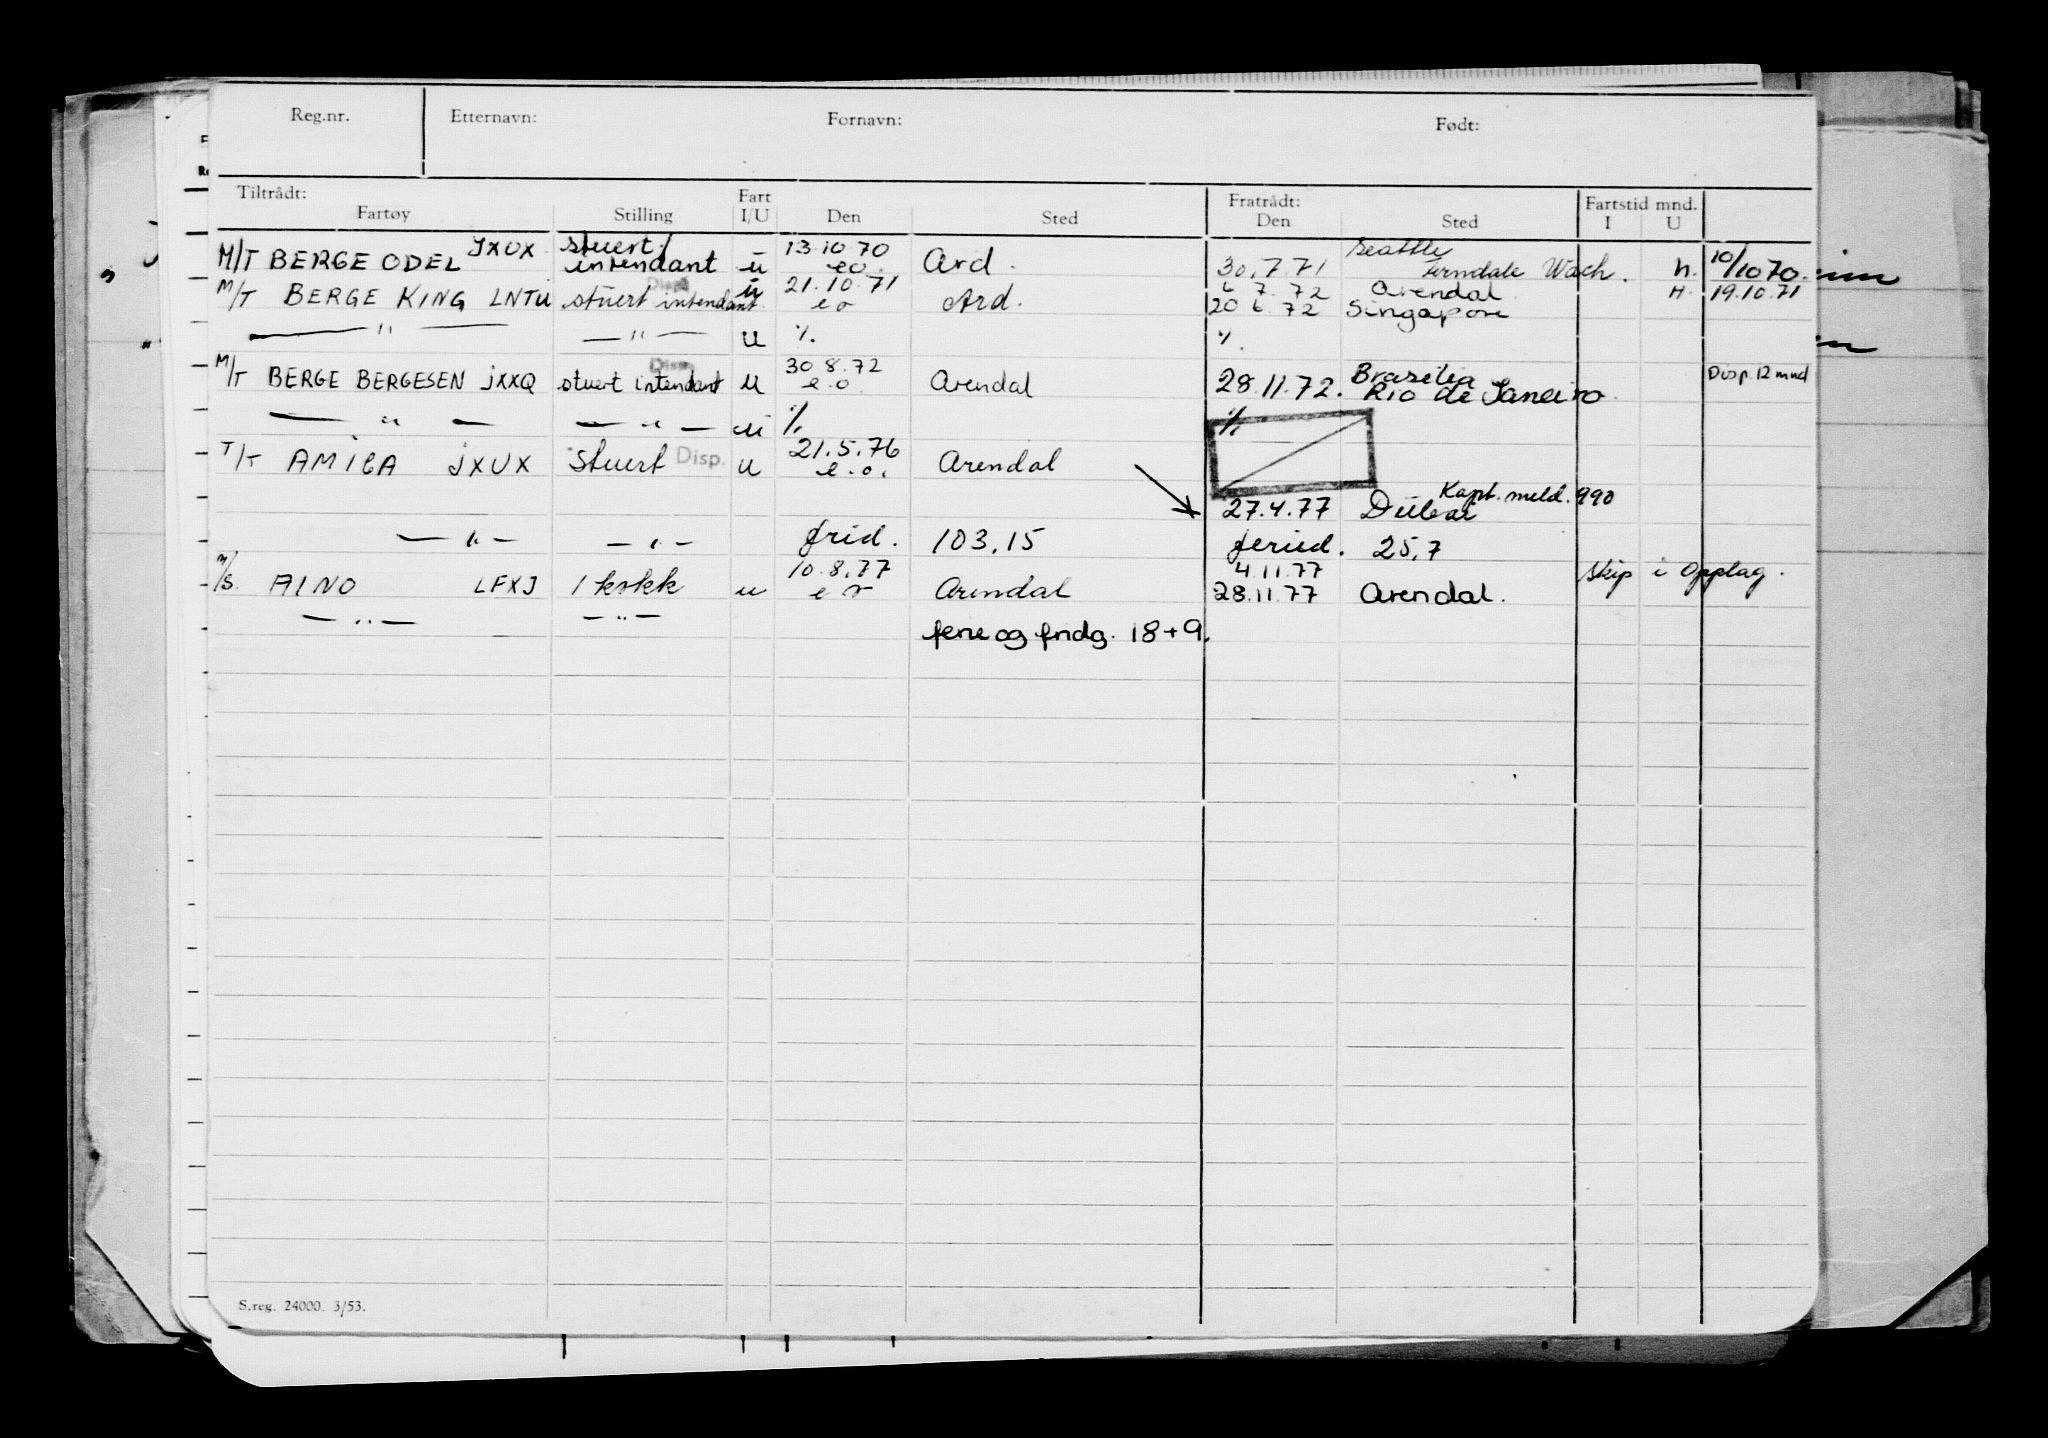 Reg.nr. Etternavn: Fornavn: Født:
Tiltrådt: Fart Fratrådt: Fartstid mnd.
Fartøy Stilling I/U Den Sted Den Sted I U
JXUX stuert/ 13.10.70 Seattle
M/T BERGE ODEL intendant u eo. Ard. 30.7.71 Ferndale Wash. h. 10/10 70.
Disp 21.10.71 6 7.72 Arendal H. 19.10.71
M/T BERGE KING LNTU stuert intendant u eo Ard. 20 6.72 Singapore
— " — — " — u %. %.
Disp. 30 8.72 Brasilia Disp. 12 mnd
M/T BERGE BERGESEN JXXQ stuert intendant u e.o. Arendal 28.11.72. Rio de Janeiro
— " — — " — u %. %.
21.5.76
T/T AMICA JXUX Stuert Disp. u e.o. Arendal
Kapt. meld. 990
27.4.77 Dubai
— " — — " — frid. 103.15 feried. 25,7
10.8.77 4.11.77 Skip i opplag.
M/S. AINO LFXJ 1 kokk u eo Arendal 28.11.77 Arendal.
— " — — " —
ferie og fridg. 18+9.
S.reg. 24000. 3/53.